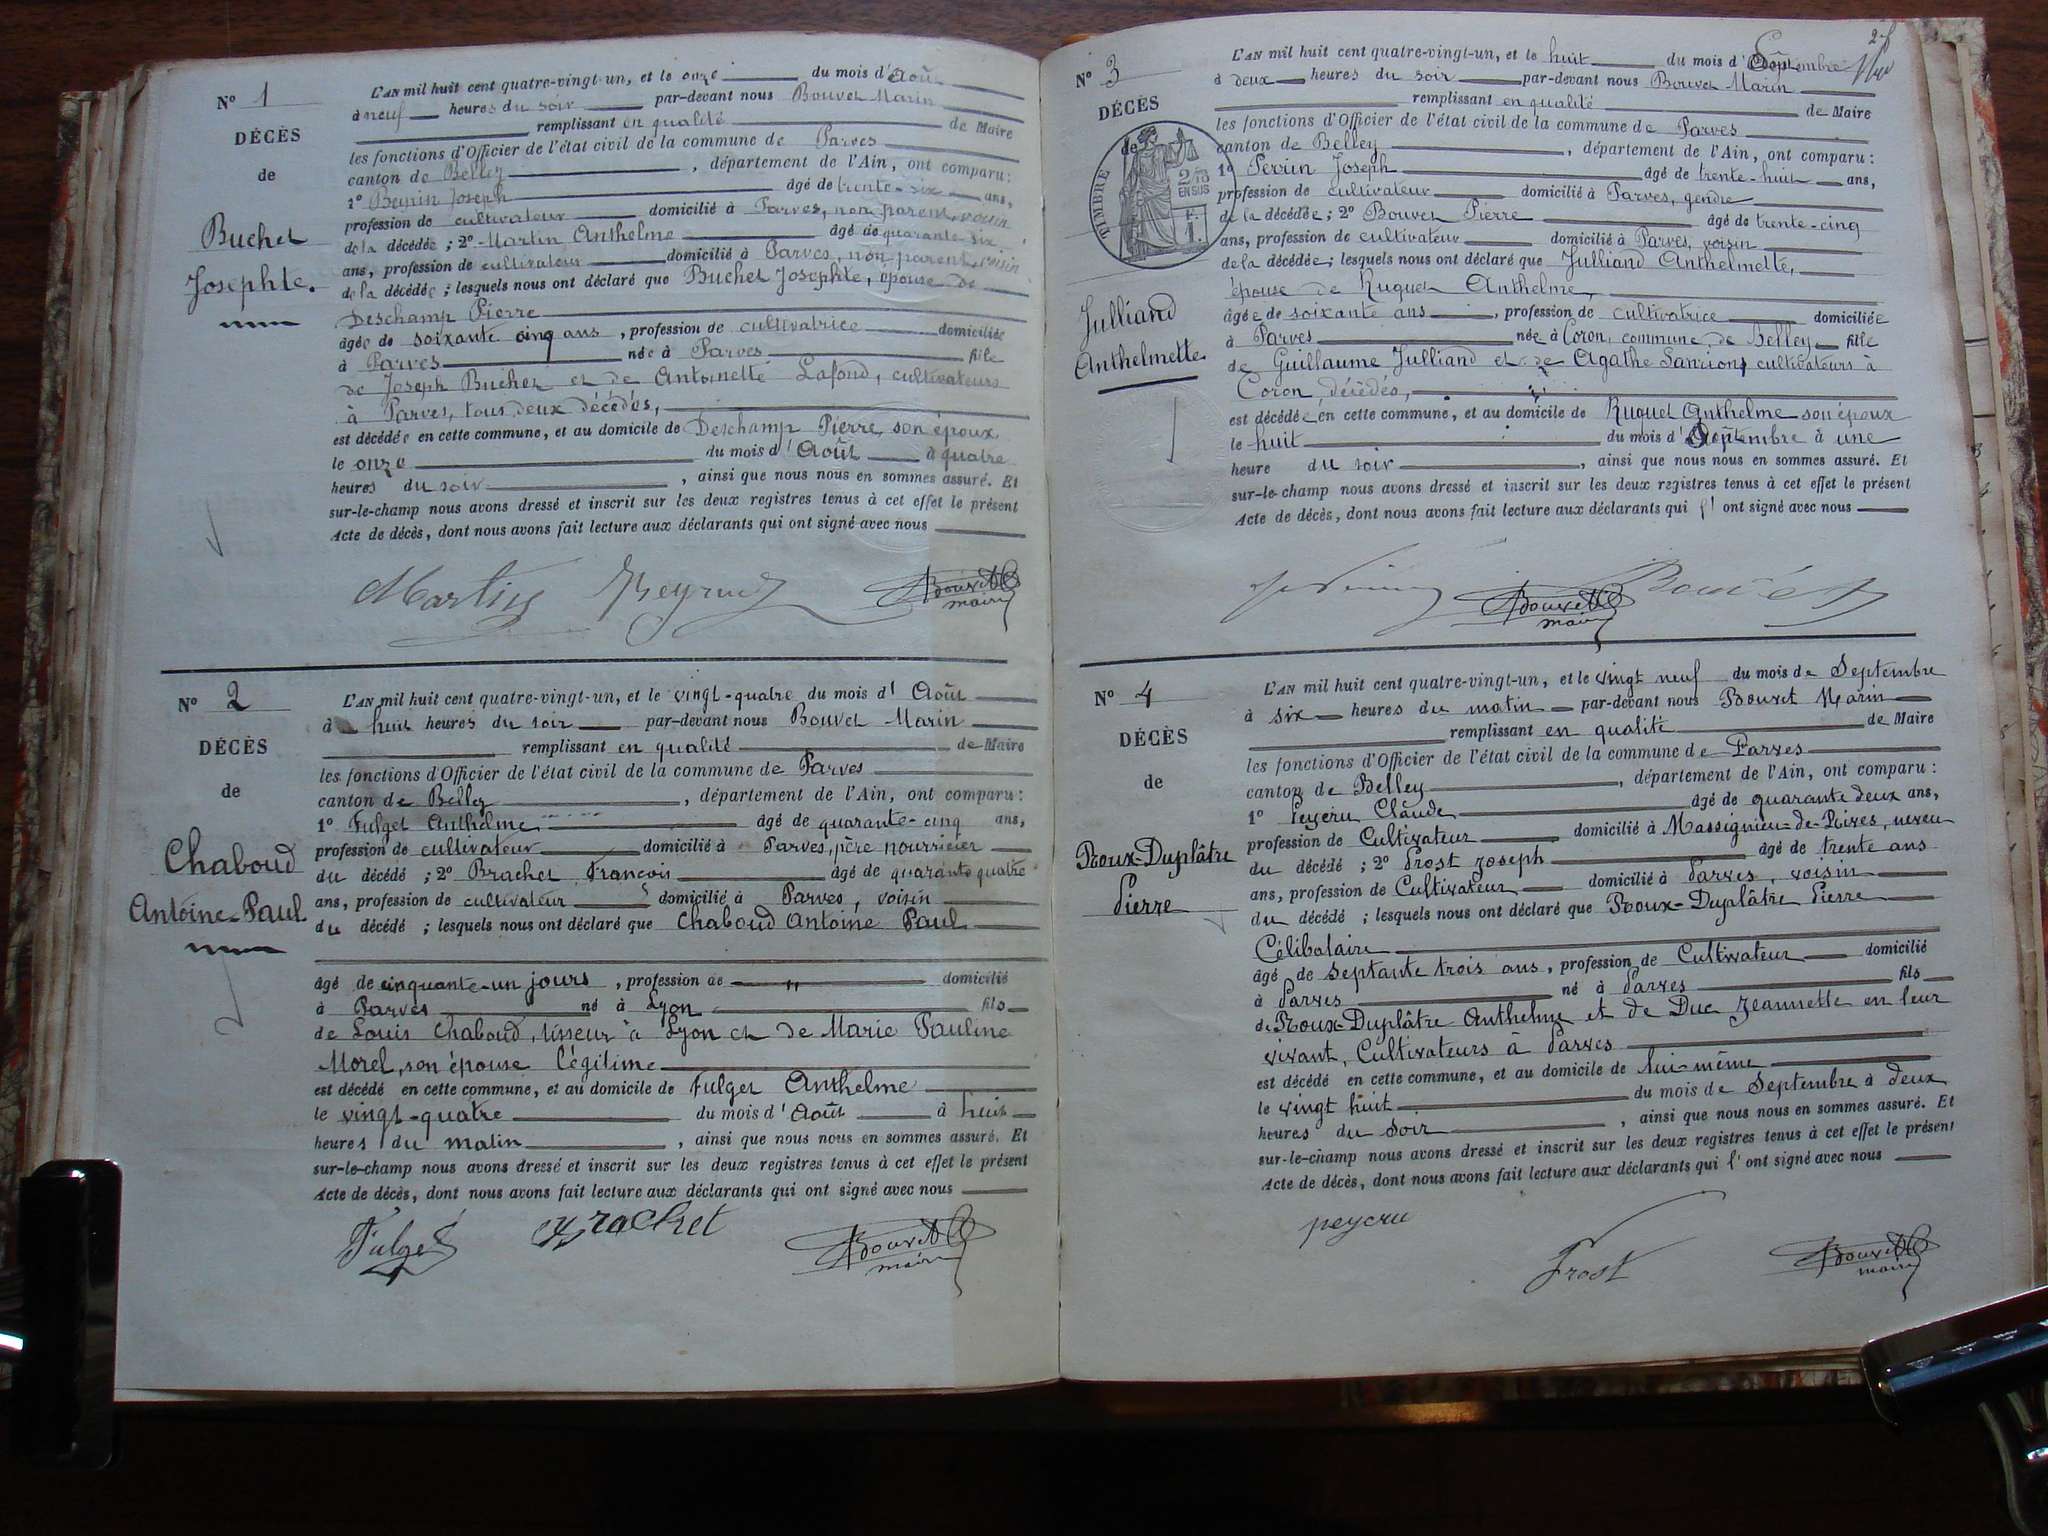 N° 1
DÉCÈS
de
Buchet
Josephte.
L'AN mil huit cent quatre-vingt-un, et le onze du mois d'Août
à neuf heures du soir par-devant nous Bouvet Marin
remplissant en qualité de Maire
les fonctions d'Officier de l'état civil de la commune de Parves
canton de Belley, département de l'Ain, ont comparu:
1° Joseph âgé de trente-six ans,
profession de cultivateur domicilié à Parves, non parent, voisin
de la décédée; 2° Martin Anthelme âgé de quarante six
ans, profession de cultivateur domicilié à Parves, non parent, voisin
de la décédée; lesquels nous ont déclaré que Buchet Josephte, épouse de
Deschamp Pierre
âgée de soixante cinq ans, profession de cultivatrice domiciliée
à Parves née à Parves fille
de Joseph Buchet et de Antoinette Lafond, cultivateurs
à Parves, tous deux décédés,
est décédée en cette commune, et au domicile de Deschamp Pierre, son époux
le onze du mois d'Août à quatre
heures du soir, ainsi que nous nous en sommes assuré. Et
sur-le-champ nous avons dressé et inscrit sur les deux registres tenus à cet effet le présent
Acte de décès, dont nous avons fait lecture aux déclarants qui ont signé avec nous
Martin Bouvet
maire
N° 2
DÉCÈS
de
Chaboud
Antoine-Paul
L'AN mil huit cent quatre-vingt-un, et le vingt-quatre du mois d'Août
à huit heures du soir par-devant nous Bouvet Marin
remplissant en qualité de Maire
les fonctions d'Officier de l'état civil de la commune de Parves
canton de Belley, département de l'Ain, ont comparu:
1° Fulget Anthelme âgé de quarante-cinq ans,
profession de cultivateur domicilié à Parves, père nourricier
du décédé; 2° Brachet François âgé de quarante quatre
ans, profession de cultivateur domicilié à Parves, voisin
du décédé; lesquels nous ont déclaré que Chaboud Antoine Paul
âgé de cinquante-un jours, profession de " domicilié
à Parves né à Lyon fils
de Louis Chaboud, tisseur à Lyon et de Marie Pauline
Morel, son épouse légitime
est décédé en cette commune, et au domicile de Fulget Anthelme
le vingt-quatre du mois d'Août à huit
heures du matin, ainsi que nous nous en sommes assuré. Et
sur-le-champ nous avons dressé et inscrit sur les deux registres tenus à cet effet le présent
Acte de décès, dont nous avons fait lecture aux déclarants qui ont signé avec nous
Fulget Brachet Bouvet
maire
N° 3
DÉCÈS
de
TIMBRE
2/10
EN SUS
F.
1.
Julliand
Anthelmette
L'AN mil huit cent quatre-vingt-un, et le huit du mois d'Septembre
à deux heures du soir par-devant nous Bouvet Marin
remplissant en qualité de Maire
les fonctions d'Officier de l'état civil de la commune de Parves
canton de Belley, département de l'Ain, ont comparu:
1° Perrin Joseph âgé de trente-huit ans,
profession de cultivateur domicilié à Parves, gendre
de la décédée; 2° Bouvet Pierre âgé de trente-cinq
ans, profession de cultivateur domicilié à Parves, voisin
de la décédée; lesquels nous ont déclaré que Julliand Anthelmette,
épouse de Huguet Anthelme,
âgée de soixante ans, profession de cultivatrice domiciliée
à Parves née à Coron, commune de Belley fille
de Guillaume Julliand et de Agathe cultivateurs à
Coron, décédés,
est décédée en cette commune, et au domicile de Huguet Anthelme son époux
le huit du mois d'Septembre à une
heure du soir, ainsi que nous nous en sommes assuré. Et
sur-le-champ nous avons dressé et inscrit sur les deux registres tenus à cet effet le présent
Acte de décès, dont nous avons fait lecture aux déclarants qui l'ont signé avec nous
Bouvet
Bouvet
maire
N° 4
DÉCÈS
de
Roux-Duplâtre
Pierre
L'AN mil huit cent quatre-vingt-un, et le vingt neuf du mois de Septembre
à six heures du matin par-devant nous Bouvet Marin
remplissant en qualité de Maire
les fonctions d'Officier de l'état civil de la commune de Parves
canton de Belley, département de l'Ain, ont comparu:
1° Peycru Claude âgé de quarante deux ans,
profession de Cultivateur domicilié à Massignieu-de-Rives, neveu
du décédé; 2° Frost Joseph âgé de trente ans
ans, profession de Cultivateur domicilié à Parves, voisin
du décédé; lesquels nous ont déclaré que Roux-Duplâtre Pierre
Célibataire
âgé de septante trois ans, profession de Cultivateur domicilié
à Parves né à Parves fils
de Roux-Duplâtre Anthelme et de Duc Jeannette en leur
vivant, Cultivateurs à Parves
est décédé en cette commune, et au domicile de lui-même
le vingt huit du mois de Septembre à deux
heures du soir, ainsi que nous nous en sommes assuré. Et
sur-le-champ nous avons dressé et inscrit sur les deux registres tenus à cet effet le présent
Acte de décès, dont nous avons fait lecture aux déclarants qui l'ont signé avec nous
peycru
Frost
Bouvet
maire